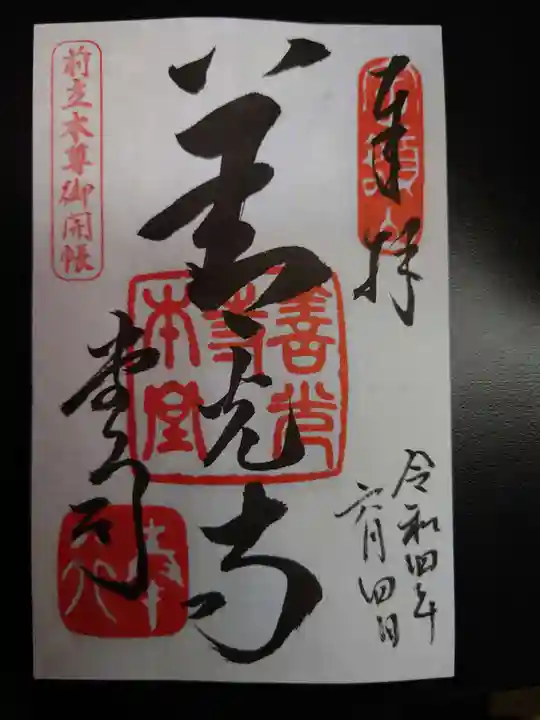 奉拝
令和四年
六月四日
善光寺
善光寺本堂
堂司
前立本尊御開帳